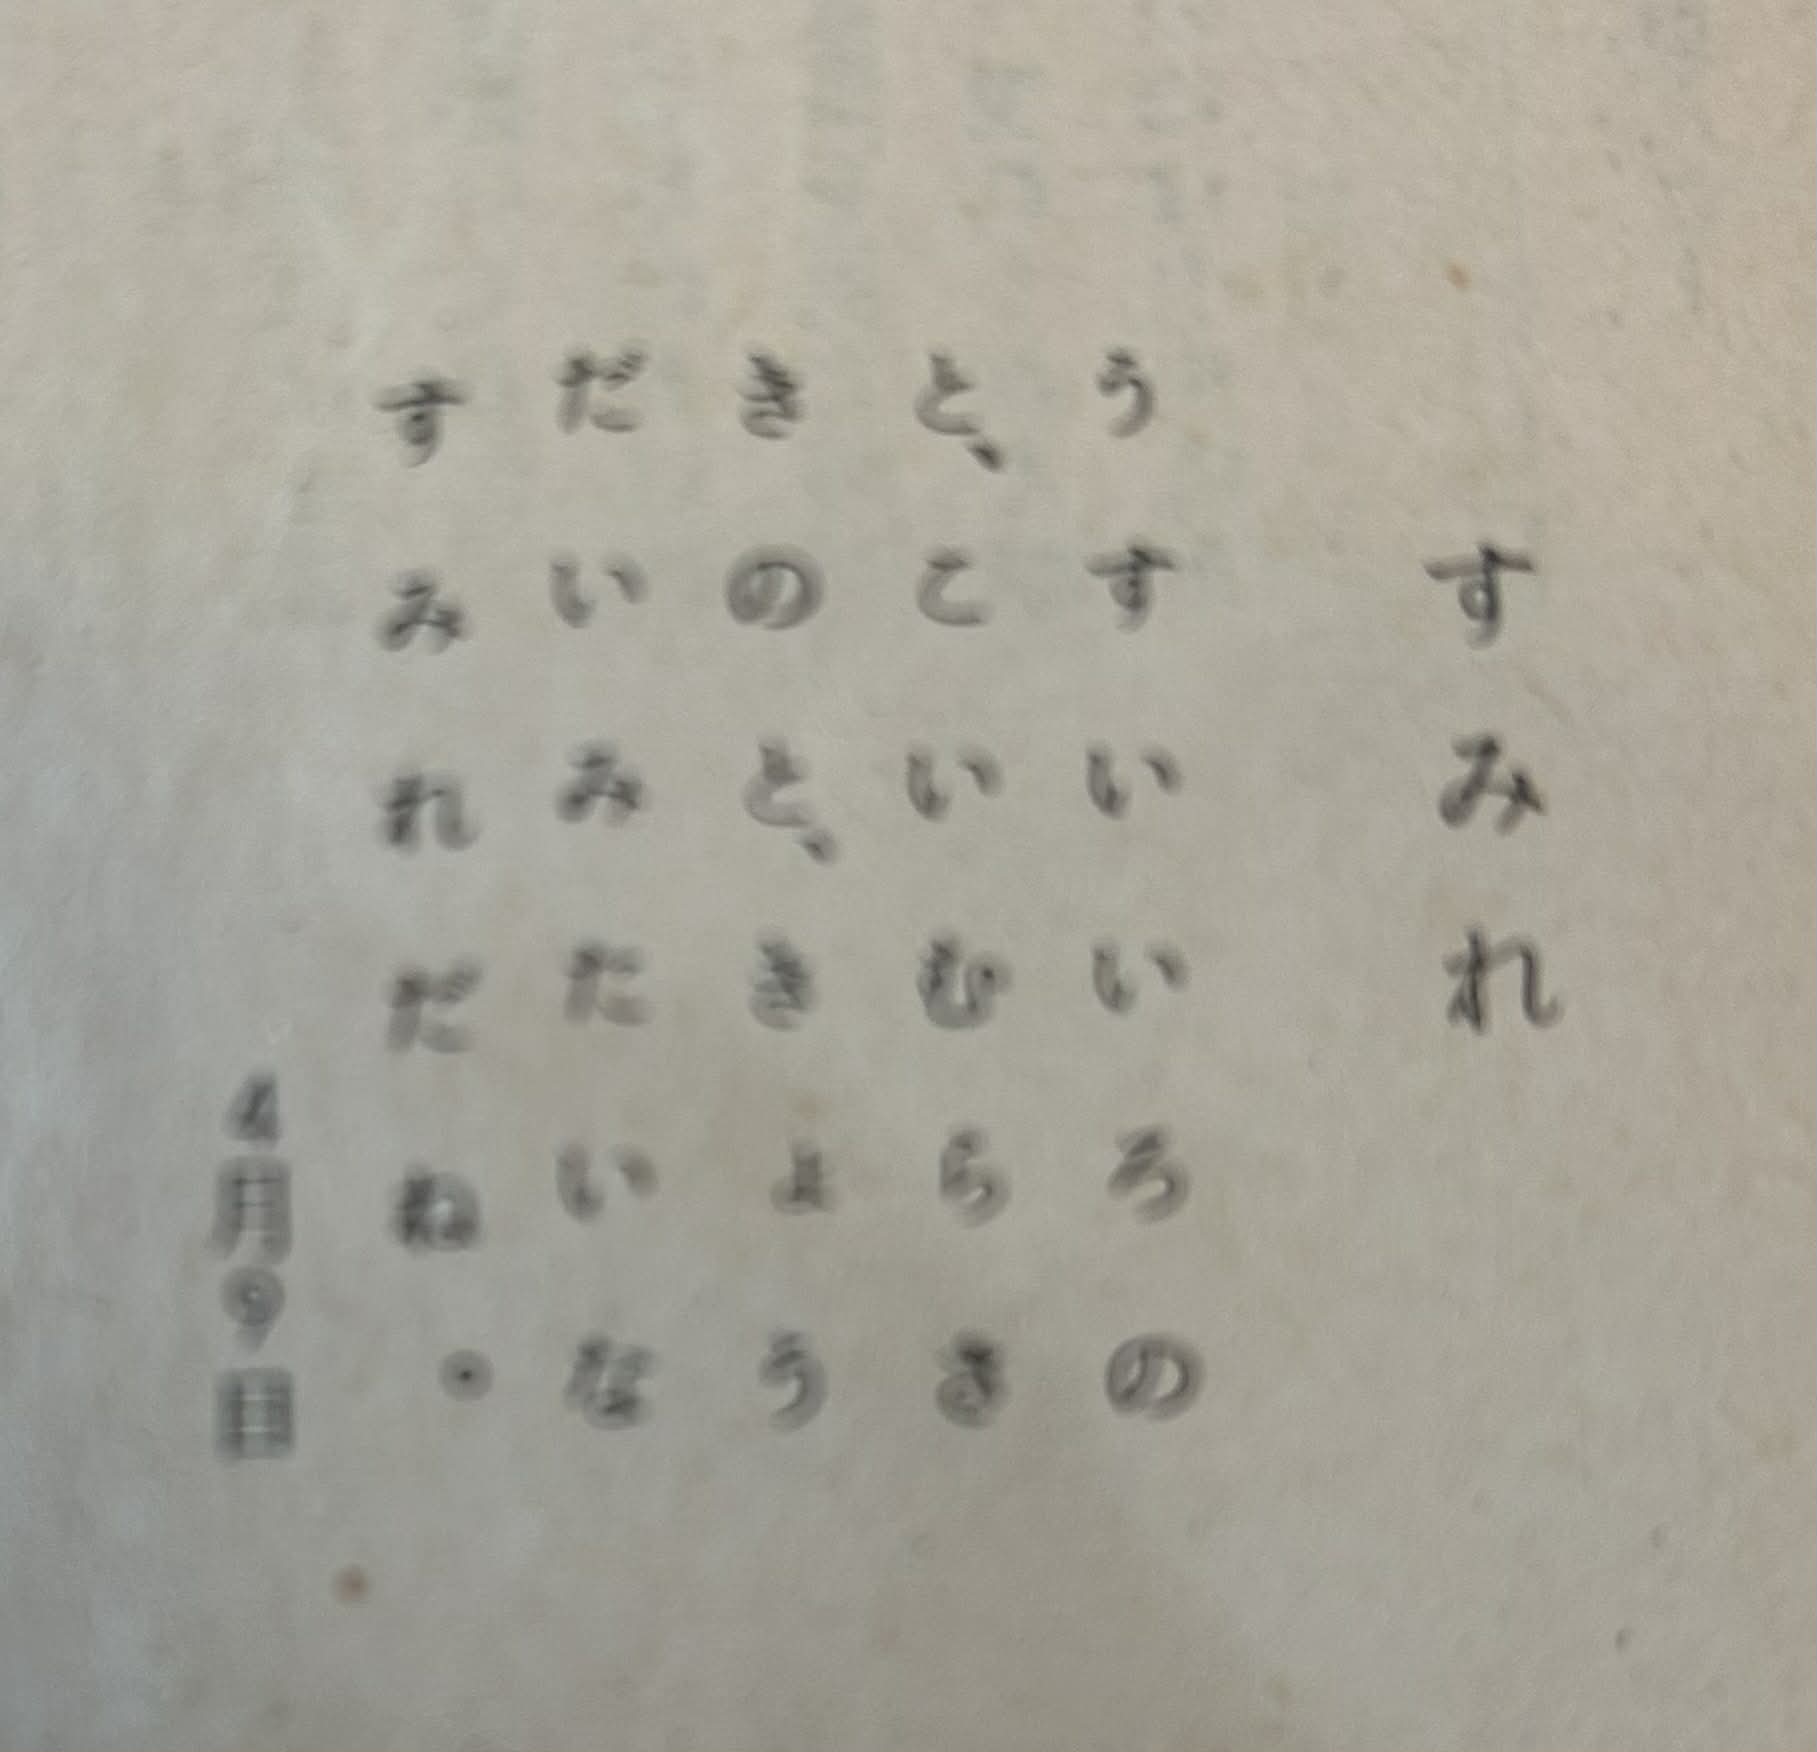 すみれ
うすいいろの
と、こいむらさ
きのと、きよう
だいみたいな
すみれだね。
4月9日